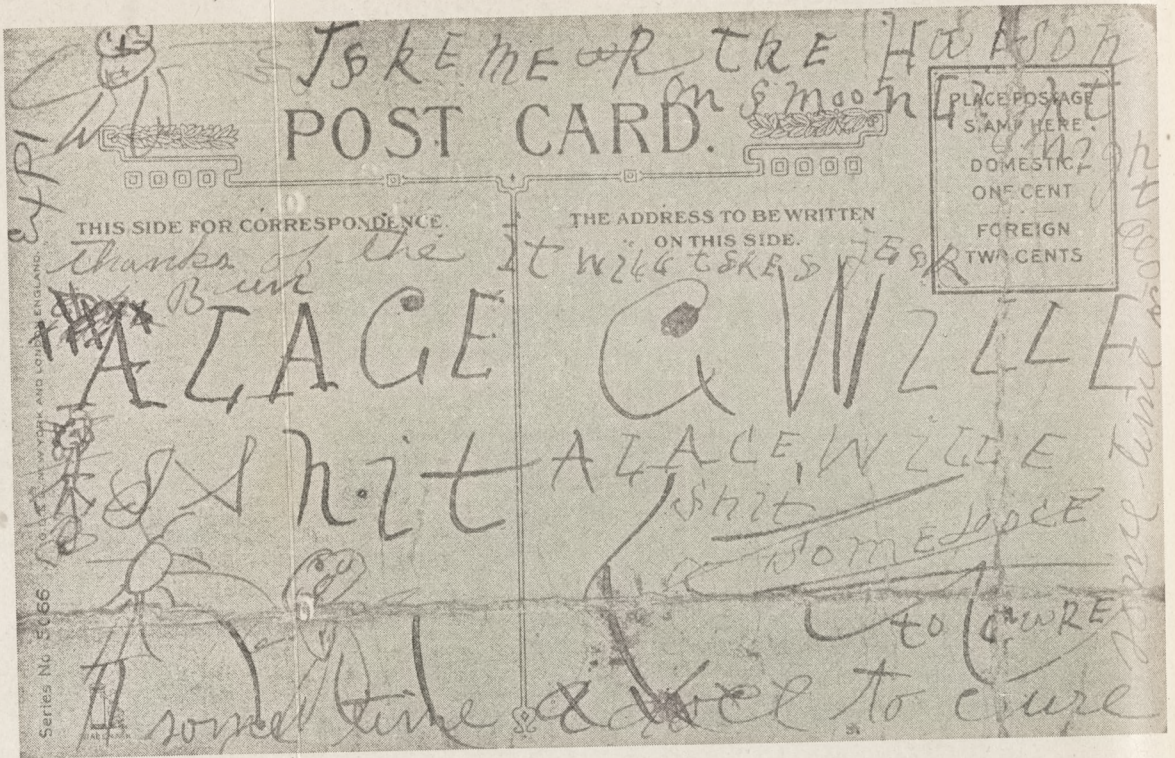 TakE mE up thE Hudson
On a moon Light
night
POST CARD.
PLACE POSTAGE
STAMP HERE.
DOMESTIC,
ONE CENT
FOREIGN
TWO CENTS
THIS SIDE FOR CORRESPONDENCE.
THE ADDRESS TO BE WRITTEN
ON THIS SIDE.
Thanks of the
Bun
It will takes a
ALACE
G WILLE
Shit
ALACE, WILLE
Shit
SomE doocE
to CURE
some time a docel to cure
some time
Series No 5066
NEW YORK AND LONDON ENGLAND.